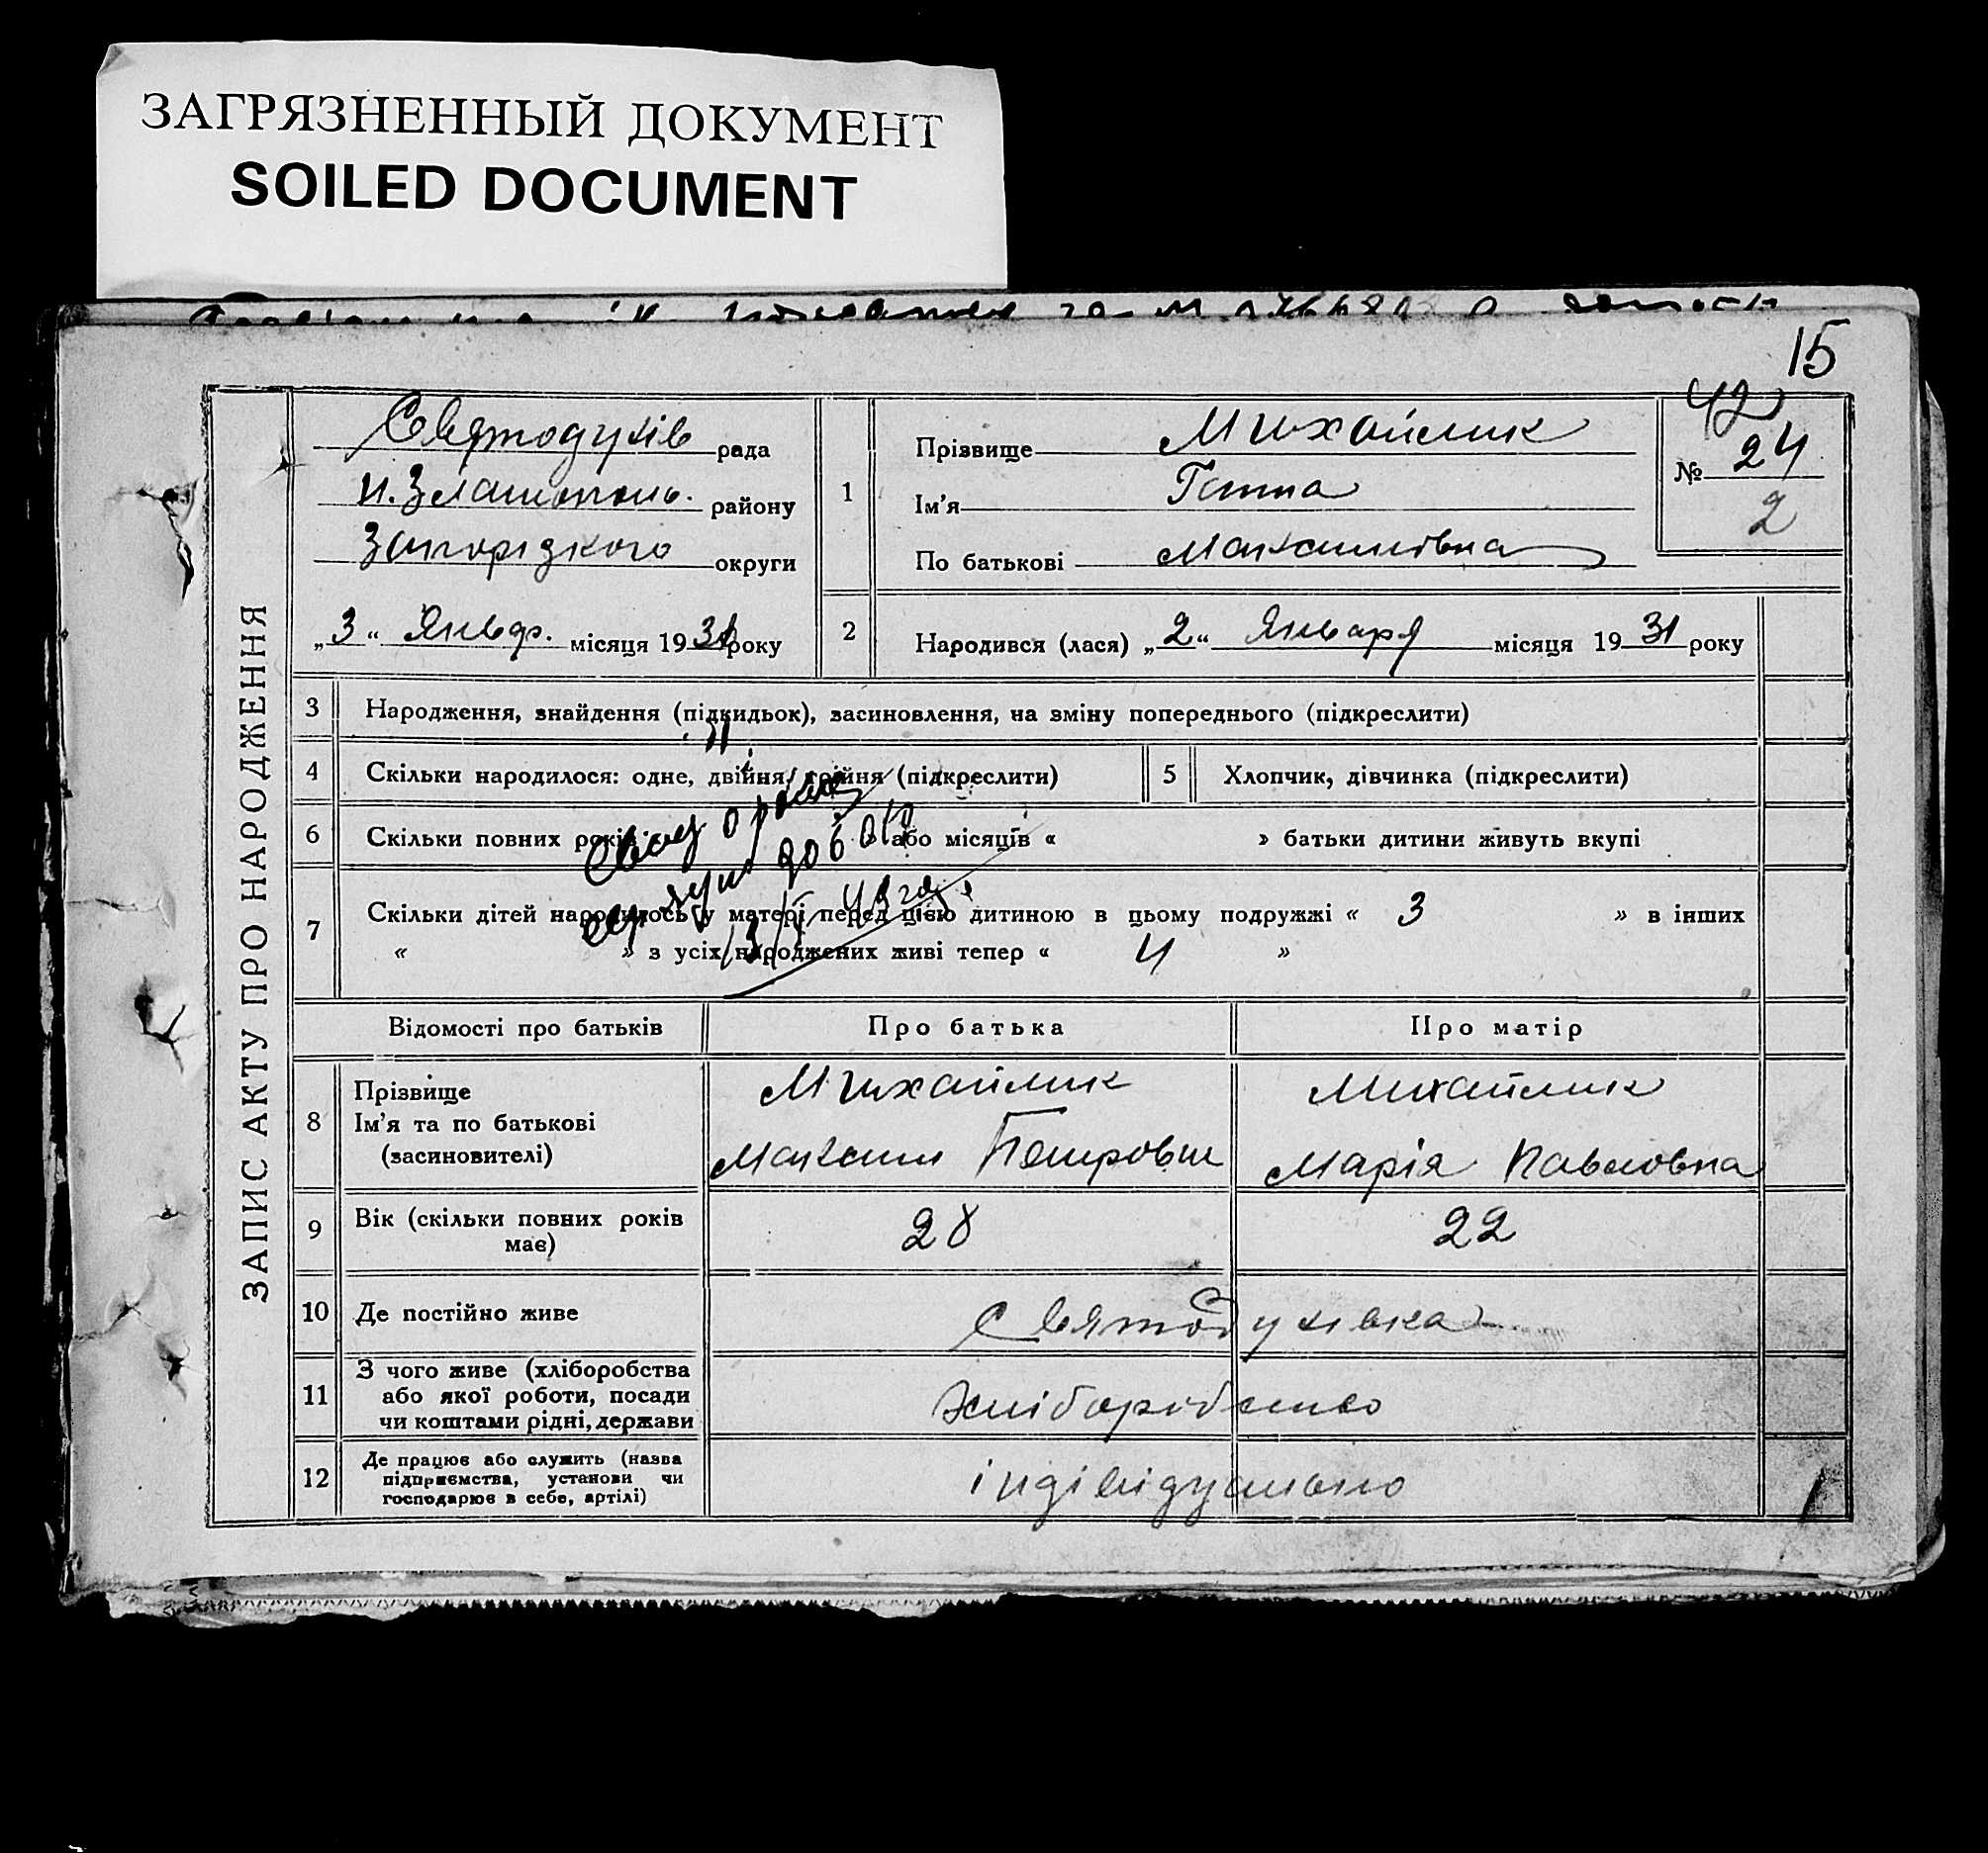 ЗАГРЯЗНЕННЫЙ ДОКУМЕНТ
SOILED DOCUMENT
15
ЗАПИС АКТУ ПРО НАРОДЖЕННЯ
Святодухів рада
н. Златопіль. району
Запорізкого округи
„3“ Январ. місяця 1931 року
1
Прізвище Михайлик
Ім'я Ганна
По батькові Максимівна
42
№ 24
2
2 Народився (лася) „2“ Января місяця 1931 року
3 Народження, знайдення (підкидьок), засиновлення, на зміну попереднього (підкреслити)
4 Скільки народилося: одне, двійня, трійня (підкреслити)
5 Хлопчик, дівчинка (підкреслити)
6 Скільки повних років або місяців « » батьки дитини живуть вкупі
7 Скільки дітей народилось у матері перед цією дитиною в цьому подружжі « 3 » в інших
« » з усіх народжених живі тепер « 4 »
Відомості про батьків Про батька Про матір
8 Прізвище
Ім'я та по батькові
(засиновителі)
Михайлик
Максим Петрович
Михайлик
Марія Павловна
9 Вік (скільки повних років
має)
28 22
10 Де постійно живе Святодухівка
11 З чого живе (хліборобства
або якої роботи, посади
чи коштами рідні, держави
хліборобство
12 Де працює або служить (назва
підприємства, установи чи
господарює в себе, артілі)
індівідуально